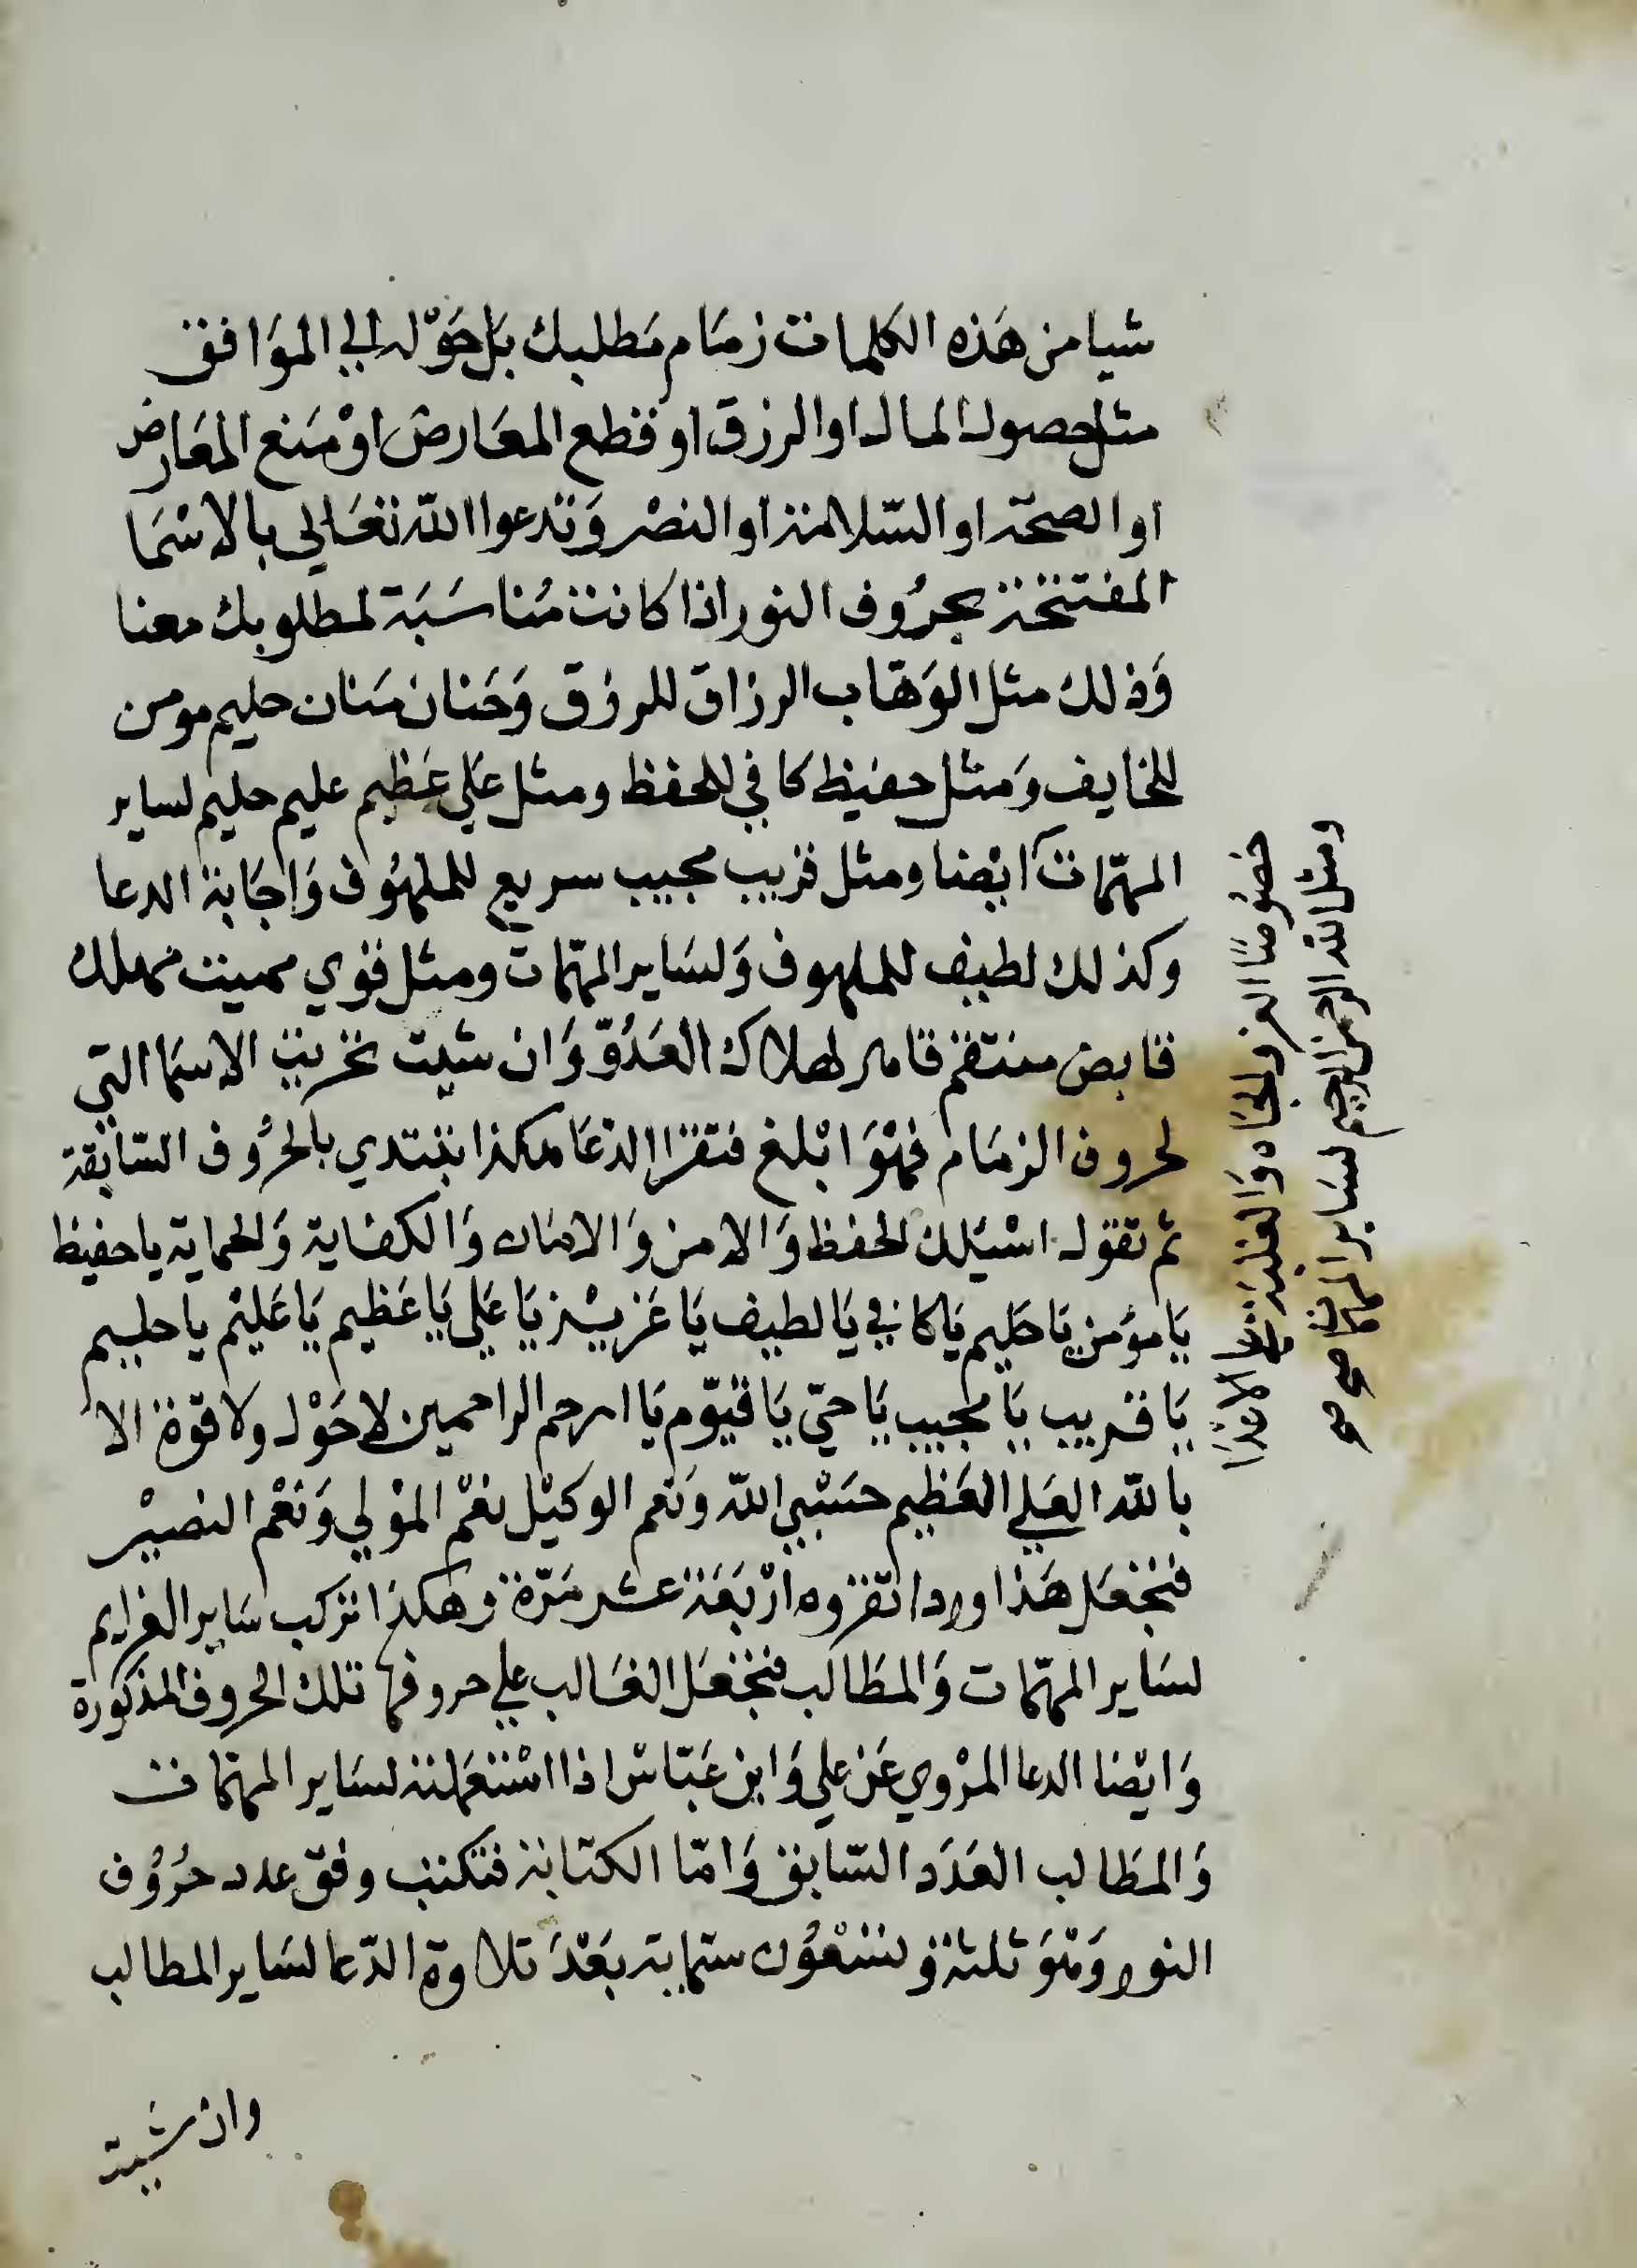 شيا من هَذه الكلمات زمَام مَطلبك بَل حَوّله الي الموَافق
مثل حصول المال او الرزق او قطع المعَارض اوْ مَنع المعَارض
او الصحّة او السّلامة او النصْر وَتدعوا اللّه تعَالي بالاسْمَا
المفتتحة بحرُوف النور اذا كانت مُناسَبَة لمطلوبك معنا
وَذلك مثل الوَهّاب الرزاق للرزق وَحَنان مَنان حليم مومن
للخايف وَمثل حفيظ كافي للحفظ ومثل عَلي عَظيم عليم حليم لساير
المهمّات ايْضا ومثل قريب مجيب سريع للملهُوف وَاِجَابة الدعا
وكذلك لطيف للملهوف وَلسَاير المهمّات ومثل قوي مميت مهلك
قابض منتقم قاهر لهلاك العَدُوّ وَان شيت تخريت الاسمَا التي
لحروف الزمَام فهْوَ ابْلغ فتقرا الدّعَا هكذا تبتدي بالحرُوف السّابقة
ثم تقول اسْيَلك الحفظ وَالامن وَالامَان وَالكفاية وَالحماية يا حفيظ
يَا مؤمن يَا حَليم يَا كافي يَا لطيف يَا عَزيْز يَا عَلي يَا عَظيم يَا عَليْم يا حليم
يَا قريب يَا مجيب يَا حيّ يَا قيّوم يَا ارحم الراحمين لا حَوْل ولا قوة الا
باللّه العَلي العَظيم حسَبْي اللّه وَنعم الوكيْل نعْم الموْلي وَنعْم النصيْر
فتجْعَل هَذا وردا تقروه ارْبَعَة عشر مَرّة وَهكذا تركب سَاير العزايم
لسَاير المهمّات وَالمطَالب فتجْعَل الغَالب علي حروفها تلك الحروف المذكورة
وَايْضا الدعا المرْوي عَن علي وَابن عَبّاسْ اذا اسْتعمَلته لسَاير المهمّات
وَالمطَالب العَدَد السّابق وَامّا الكتابة فتكتب وفق عدد حرُوُف
النور وَهْوَ ثلثة وَتسْعُون ستماية بَعْدَ تلاوة الدّعا لسَاير المطالب
وان شيت
خصُوصًا العز وَالجَاه وَالغلبَة علي الاعْدَا
ومثل اللّه الرحمن الرحيم لسَاير المهمّات صح صح